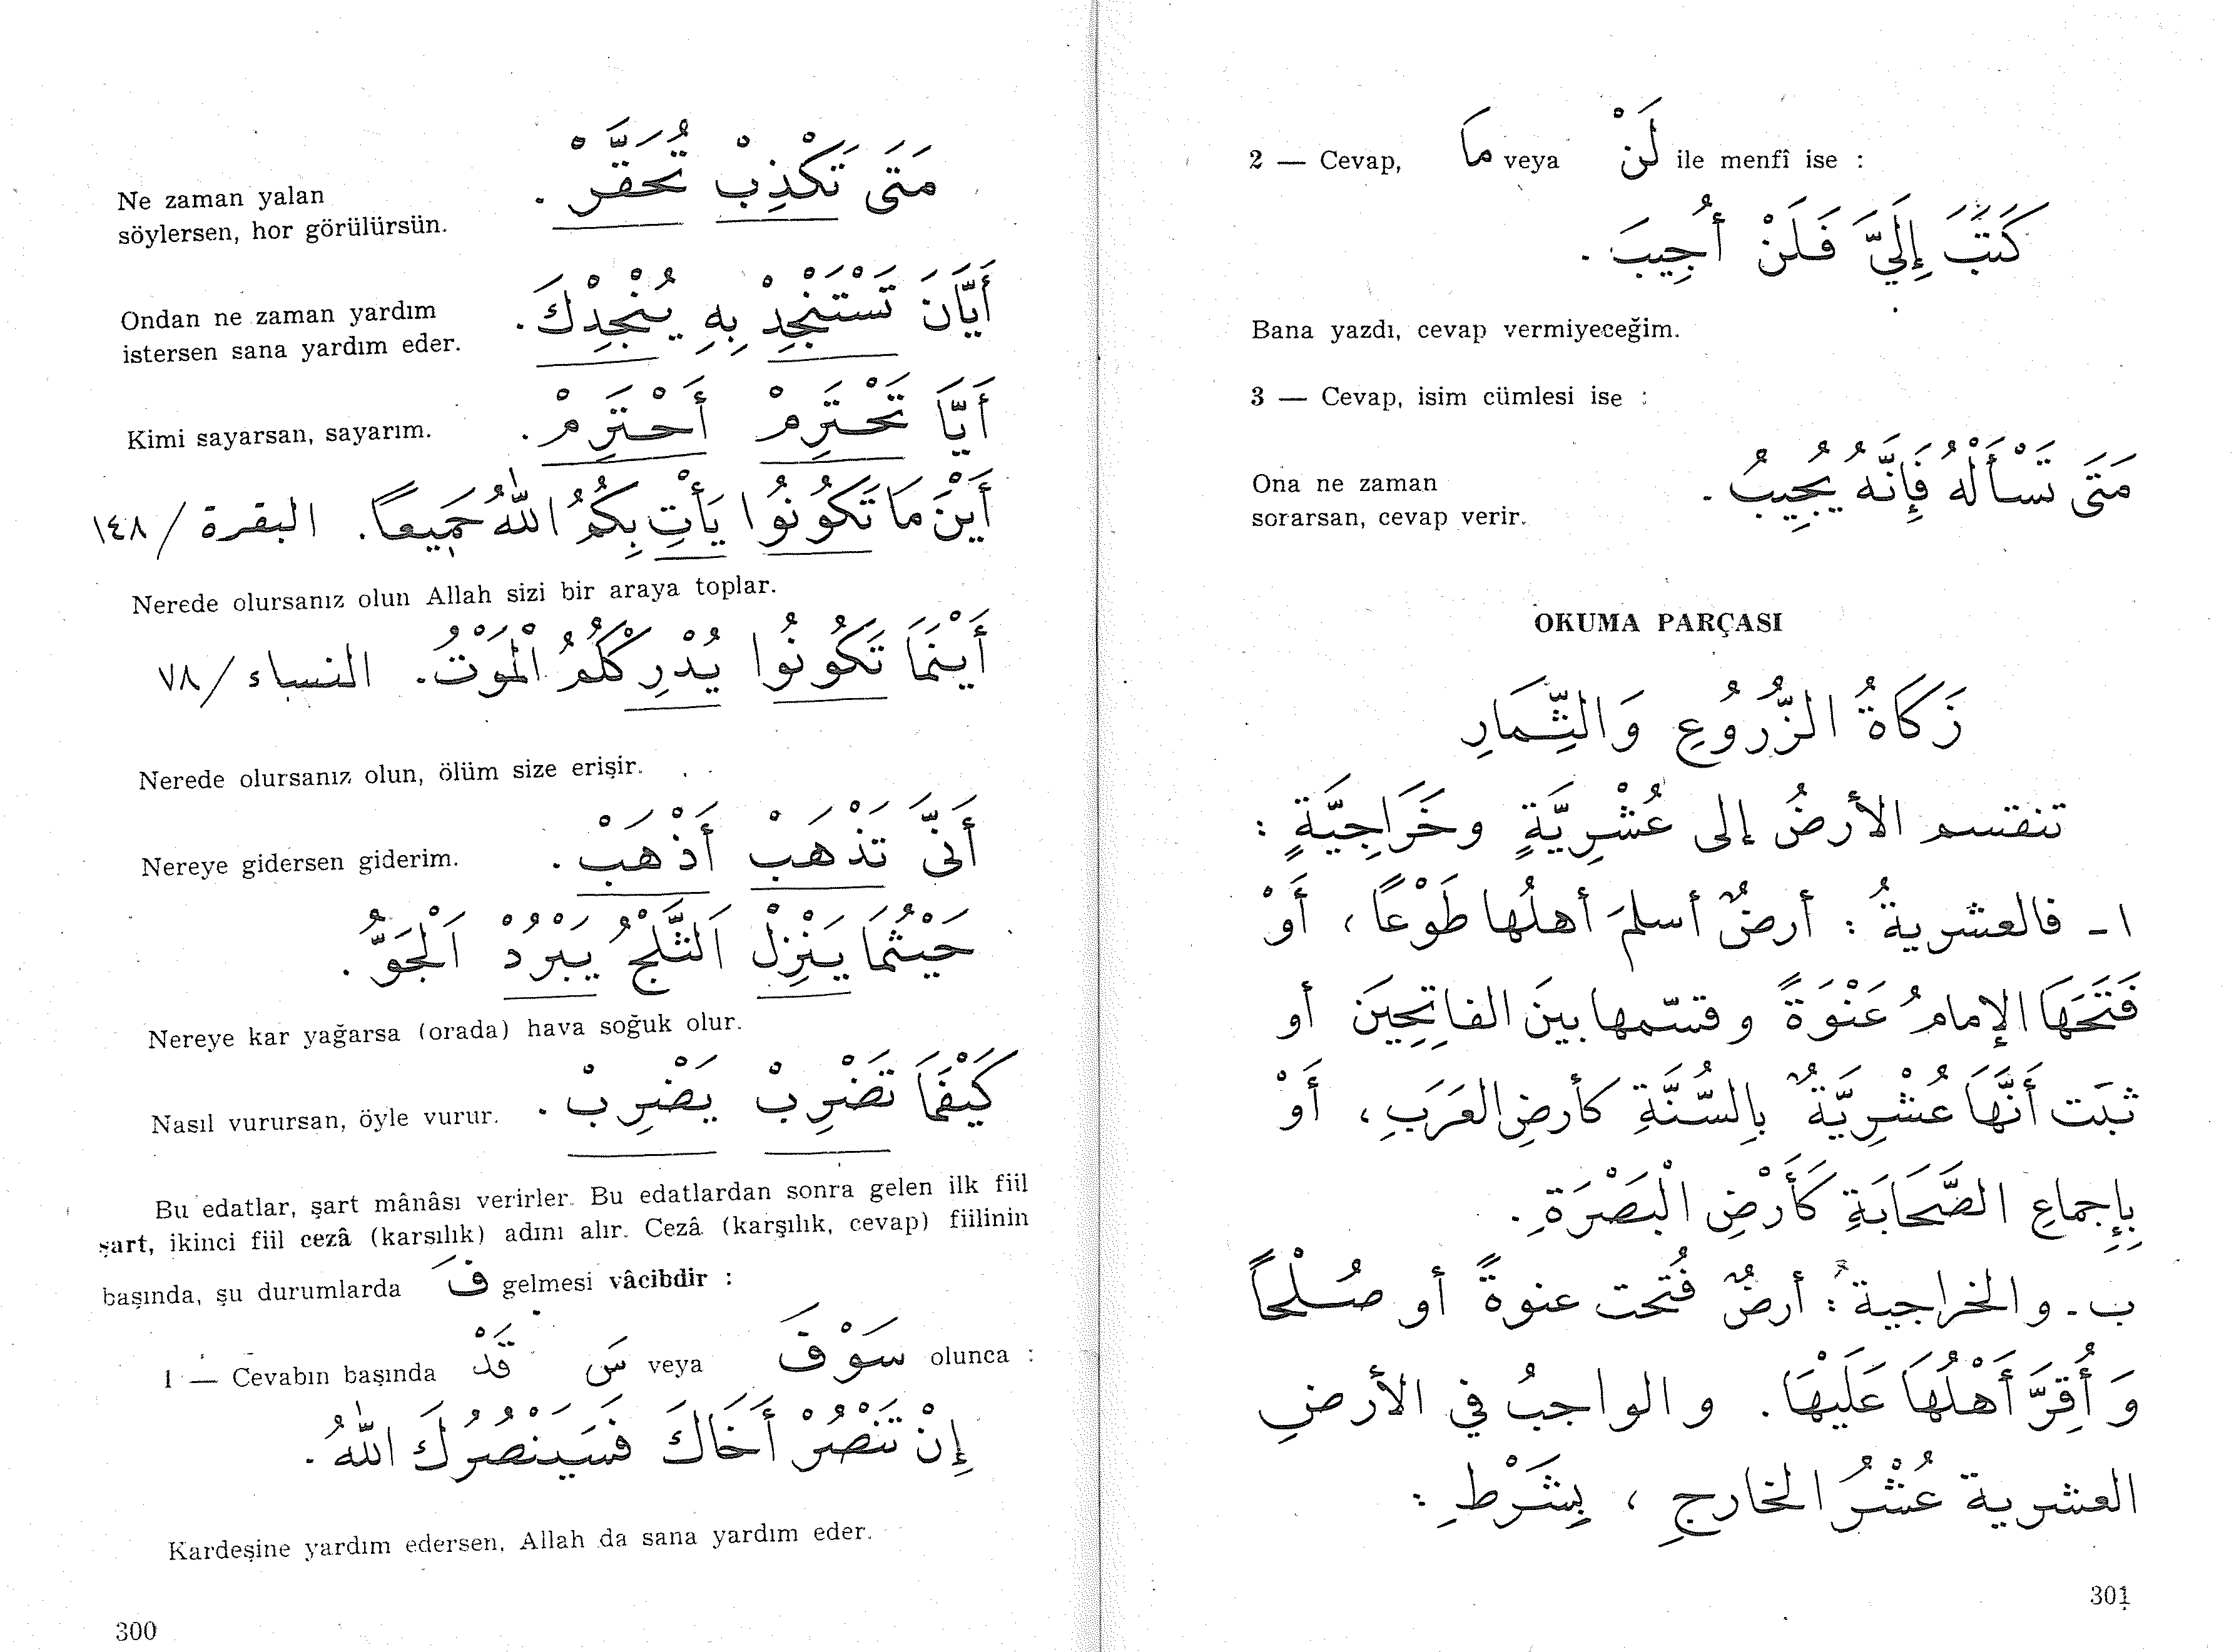 مَتَى تَكْذِبْ تُحَقَّرْ .
Ne zaman yalan
söylersen, hor görülürsün.
أَيَّانَ تَسْتَنْجِدْ بِهِ يُنْجِدْكَ .
Ondan ne zaman yardım
istersen sana yardım eder.
أَيًّا تَحْتَرِمْ أَحْتَرِمْ .
Kimi sayarsan, sayarım.
أَيْنَ مَا تَكُونُوا يَأْتِ بِكُمُ اللّٰهُ جَمِيعاً . البقرة / ١٤٨
Nerede olursanız olun Allah sizi bir araya toplar.
أَيْنَمَا تَكُونُوا يُدْرِكْكُمُ الْمَوْتُ . النساء / ٧٨
Nerede olursanız olun, ölüm size erişir.
أَنَّى تَذْهَبْ أَذْهَبْ .
Nereye gidersen giderim.
حَيْثُمَا يَنْزِلْ اَلثَّلْجُ يَبْرُدْ اَلْجَوُّ .
Nereye kar yağarsa (orada) hava soğuk olur.
كَيْفَمَا تَضْرِبْ يَضْرِبْ .
Nasıl vurursan, öyle vurur.
Bu edatlar, şart mânâsı verirler. Bu edatlardan sonra gelen ilk fiil
şart, ikinci fiil cezâ (karsılık) adını alır. Cezâ (karşılık, cevap) fiilinin
başında, şu durumlarda فَ gelmesi vâcibdir :
1 — Cevabın başında قَدْ سَ veya سَوْفَ olunca :
إِنْ تَنْصُرْ أَخَاكَ فَسَيَنْصُرُكَ اللّٰهُ .
Kardeşine yardım edersen, Allah da sana yardım eder.
300
2 — Cevap, مَا veya لَنْ ile menfî ise :
كَتَبَ إِلَيَّ فَلَنْ أُجِيبَ .
Bana yazdı, cevap vermiyeceğim.
3 — Cevap, isim cümlesi ise :
مَتَى تَسْأَلْهُ فَإِنَّهُ يُجِيبُ .
Ona ne zaman
sorarsan, cevap verir.
OKUMA PARÇASI
زَكَاةُ الزُّرُوُعِ وَالثِّمَارِ
تنقسم الأرضُ إلى عُشْرِيَّةٍ وخَرَاجِيَّةٍ :
١ - فالعشريةُ : أرضٌ أسلمَ أهلُها طَوْعاً ، أَوْ
فَتَحَهَا الإمامُ عَنْوَةً وقسّمها بينَ الفاتِحِينَ أو
ثبَت أَنَّهَا عُشْرِيَّةٌ بِالسُّنَّةِ كأرضِ العَرَبِ ، أَوْ
بِإِجماعِ الصَّحَابَةِ كَأَرْضِ الْبَصْرَةِ .
ب - والخراجيةُ : أرضٌ فُتحت عنوةً أو صُلْحاً
وَأُقِرَّ أَهْلُهَا عَلَيْهَا . والواجبُ في الأرضِ
العشرية عُشْرُ الخارجِ ، بِشَرْطِ :
301